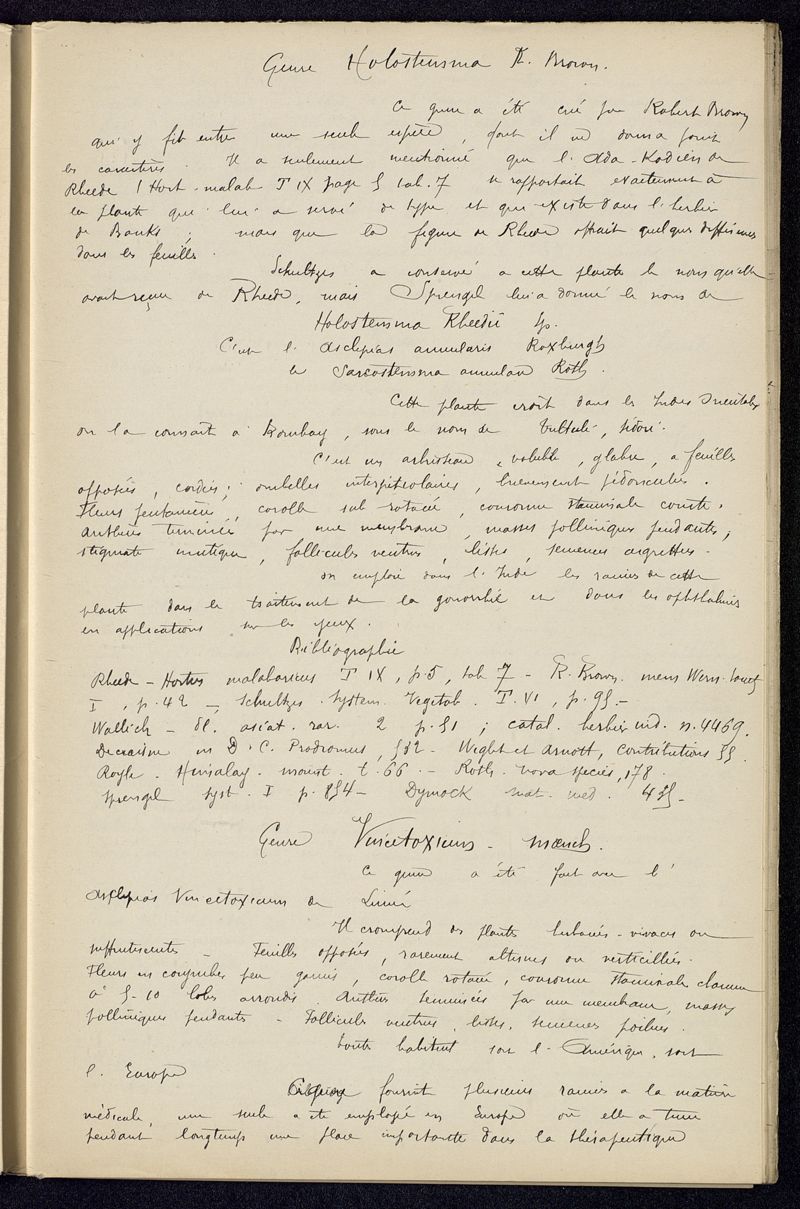 Genre Holostemma R. Brown.
Ce genre a été créé par Robert Brown
qui y fit entrer une seule espèce, dont il ne donna point
les caractères. Il a seulement mentionné que l'Ada-Kodien de
Rheede (Hort. malab. T IX page 5 tab. 7 se rapportait exactement à
la plante qui lui a servi de type et qui existe dans l'herbier
de Banks ; mais que la figure de Rheede offrait quelques différences
dans les feuilles.
Schultzes a conservé a cette plante le nom qu'elle
avait reçu de Rheede, mais Sprengel lui a donné le nom de
Holostemma Rheedii Sp.
C'est l'Asclepias annularis Roxburgh
le Sarcostemma annulare Roth.
Cette plante croît dans les Indes Orientales
on la connait à Bombay, sous le nom de
C'est un arbrisseau, voluble, glabre, a feuilles
opposées, cordées; ombelles interpétiolaires, brièvement pédonculées.
Fleurs pentamères, corolle sub rotacée, couronne staminale courte.
Anthères terminées par une membrane, masses polliniques pendantes ;
stigmate mutique, follicules ventrus, lisses, semences aigrettées.
On emploie dans l'Inde les racines de cette
plante dans le traitement de la gonorrhée et dans les ophthalmies
en applications sur les yeux.
Bibliographie
Rheede - Hortus malabaricus T IX, p. 5, tab 7 - R. Brown. mem Wern. societ
I, p. 42 - Schultzes. System. Vegetab. T. VI, p. 95. -
Wallich - Pl. asiat. rar. 2 p. 51 ; catal. herbier ind. n. 4469.
Decaisne in D. C. Prodromus, 532 - Wight et Arnott, Contributions 55.
Royle. Himalay. mount. t. 66. - Roth. nova species, 178.
Sprengel syst. I p. 854 - Dymock mat. med. 435 -
Genre Vincetoxicum - Moench.
Ce genre a été fait avec l'
Asclepias Vincetoxicum de Linné
Il comprend des plantes herbacées - vivaces ou
suffrutescentes - Feuilles opposées, rarement alternes ou verticillées.
Fleurs en corymbes peu garnis, corolle rotacée, couronne staminale charnue
à 5-10 lobes arrondis. Anthères terminées par une membrane, masses
polliniques pendantes - Follicules ventrus, lisses, semences poilues.
Toutes habitent soit l'Amérique, soit
l'Europe
fournit plusieurs racines a la matière
médicale, une seule a été employée en Europe où elle a tenu
pendant longtemps une place importante dans la thérapeutique